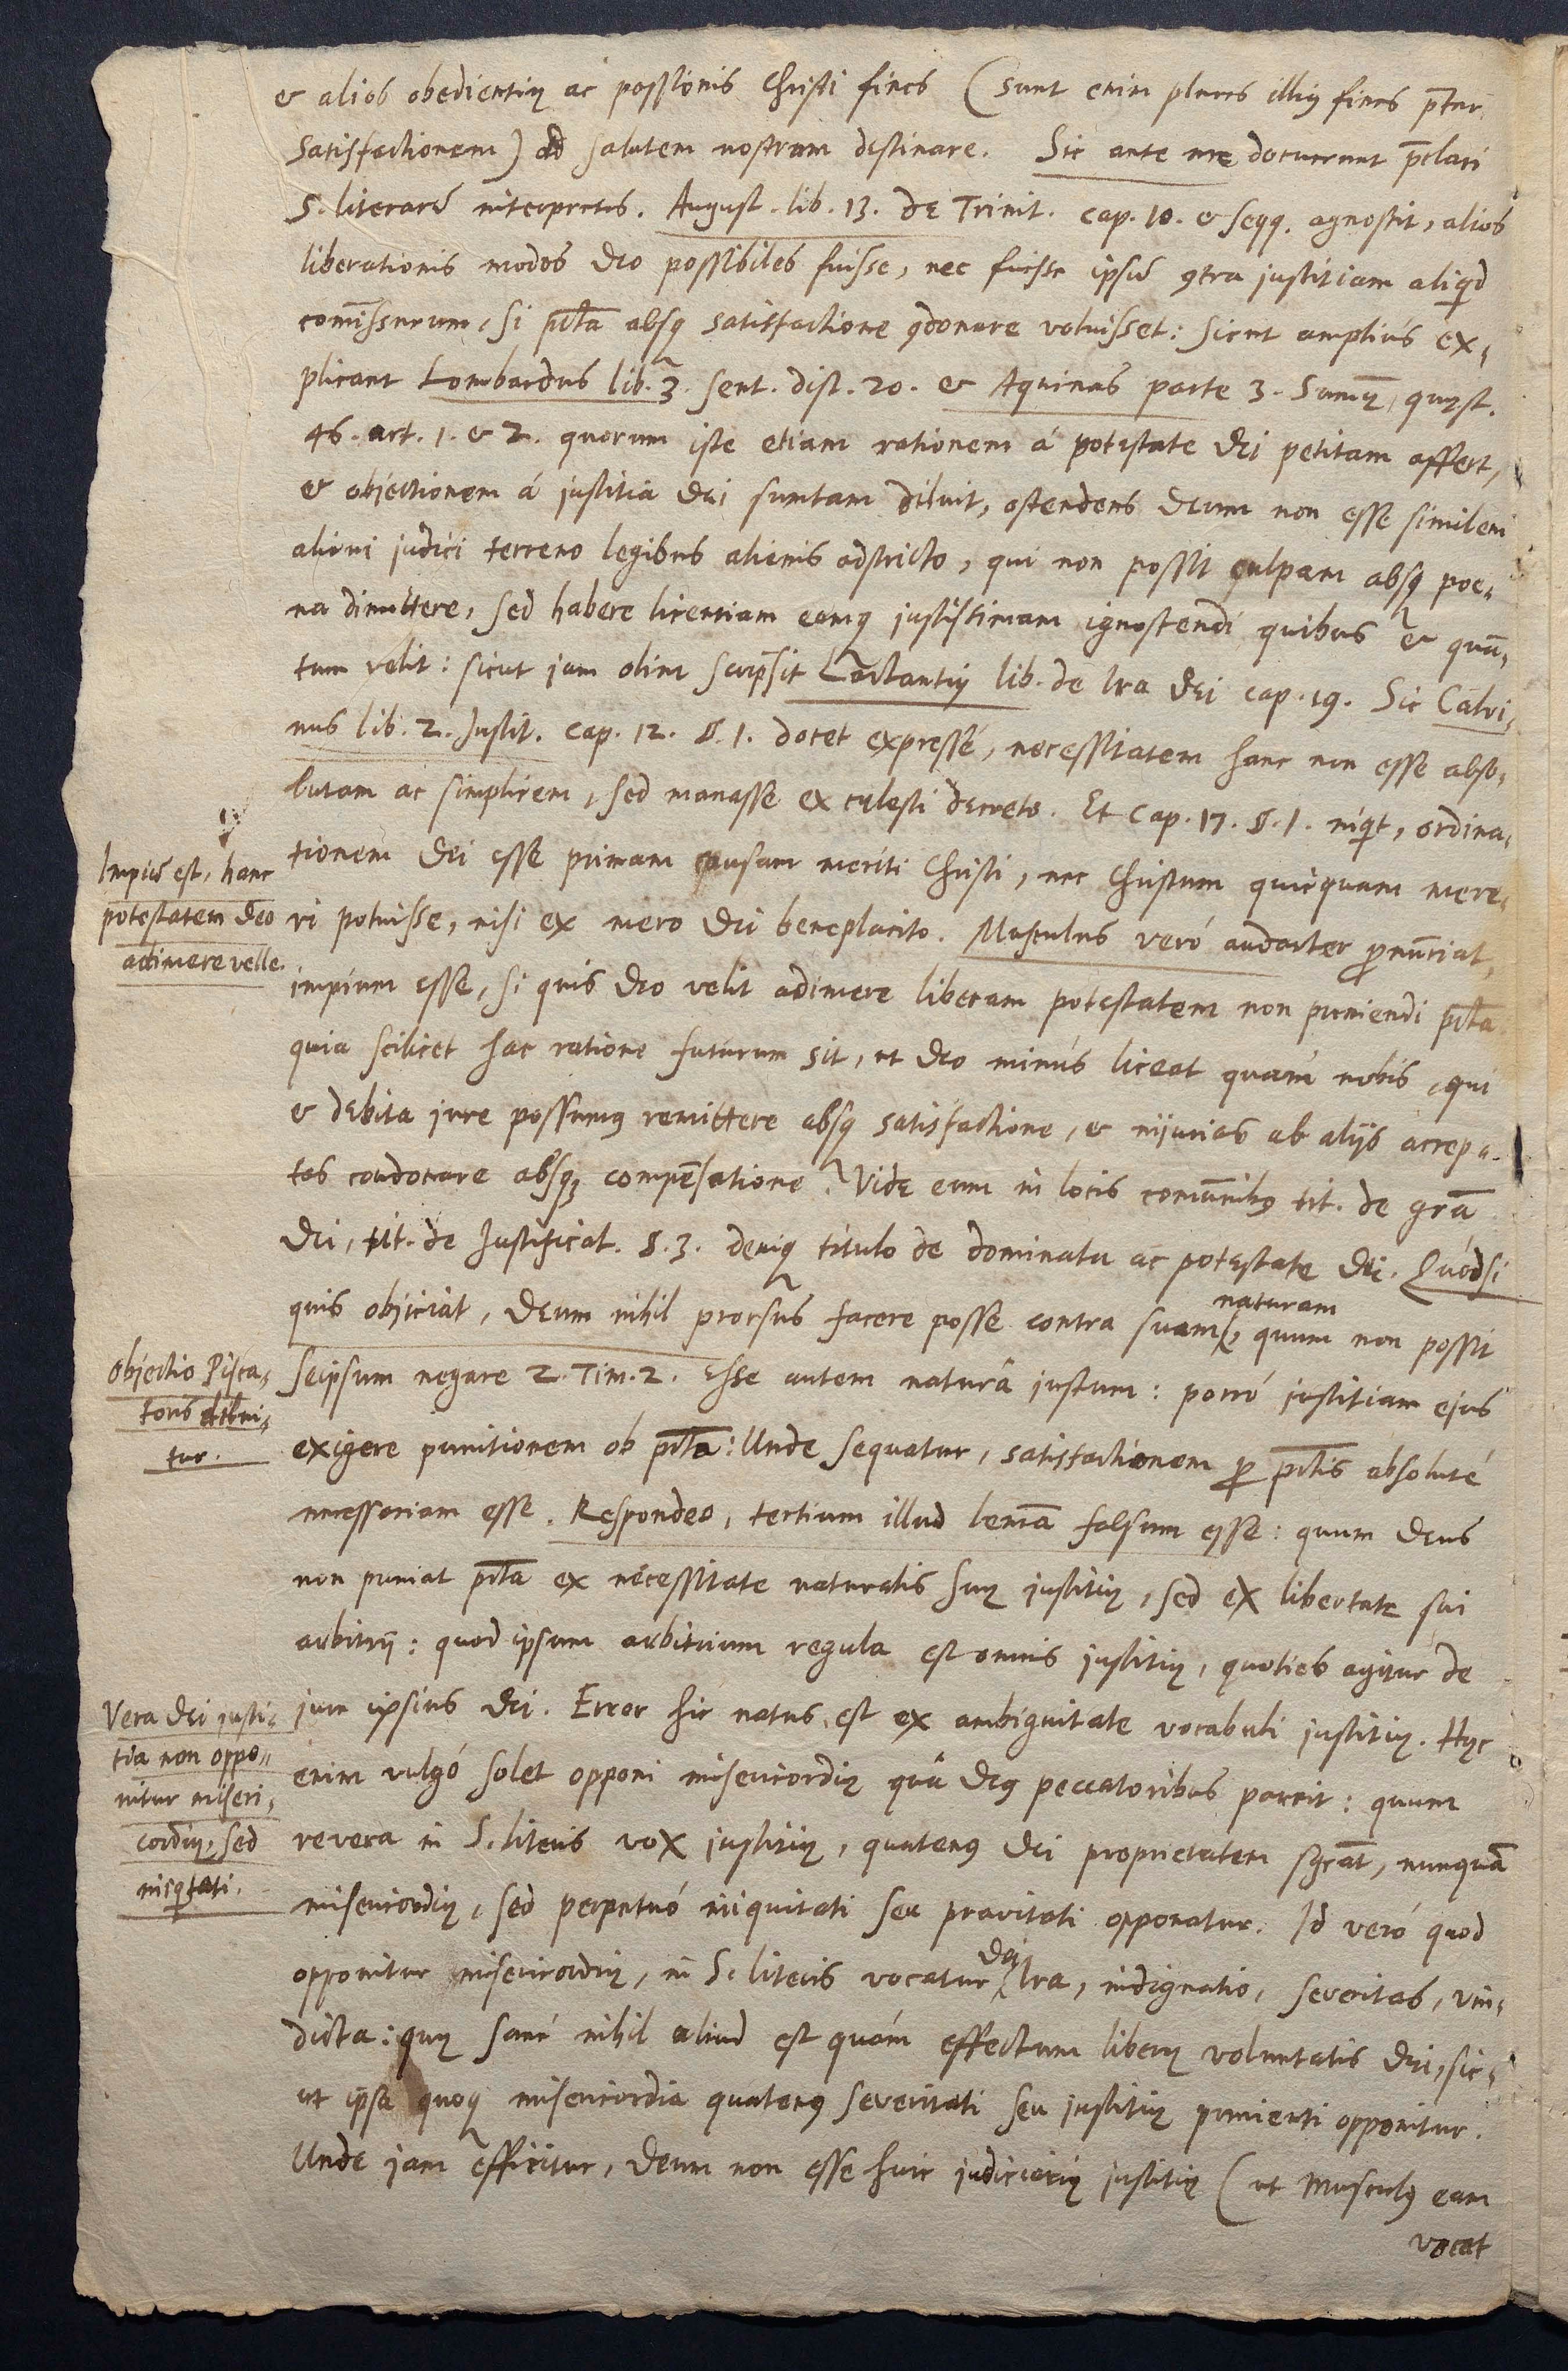 & alios obedientię ac passionis Christi fines (sunt enim plures illiꝯ fines p̄ter
satisfactionem) ad salutem nostram destinare. Sic ante me docuerunt p̄clari
S. literarũ interpretes. August. lib. 13. de Trinit. cap. 10. & seqq. agnoscit, alios
liberationis modos Deo possibiles fuisse, nec fuisse ipsũ ꝯtra justitiam aliqid
com̄issurum, si pc̄ta absqꝫ satisfactione ꝯdonare voluisset: sicut amplius ex-
plicant Lombardus lib. 3. sent. dist. 20. & Aquinas parte 3. Sum̄ę quęst.
46. art. 1. & 2. quorum iste etiam rationem á potestate Dei petitam affert,
& objectionem á justitia Dei sumtam diluit, ostendens Deum non esse similem
alicui judici terreno legibus alienis adstricto, qui non possit culpam absqꝫ poe-
na dimittere, sed habere licentiam eamqꝫ justissimam ignoscendi quibus & quā-
tum velit: sicut jam olim scripsit Lactantiꝯ lib. de Ira Dei cap. 19. Sic Calvi-
nus lib. 2. Instit. cap. 12. §. 1. docet expressé, necessitatem hanc non esse abso-
lutam ac simplicem, sed manasse ex cęlesti decreto. Et cap. 17. §. 1. inqit, ordina-
Impiũ est, hanc
potestatem Deo
adimere velle.
tionem Dei esse primam causam meriti Christi, nec Christum quicquam mere-
ri potuisse, nisi ex mero Dei beneplacito. Musculus veró audacter ꝓnunciat,
impium esse, si quis Deo velit adimere liberam potestatem non puniendi pc̄ta
quia scilicet hac ratione futurum sit, ut Deo minus liceat quám nobis, qui
& debita jure possumꝯ remittere absqꝫ satisfactione, & injurias ab alijs accep-
tas condonare absqꝫ compēsatione. Vide eum in locis com̄unibꝯ tit. de gr̄a
Dei, tit. de Justificat. §. 3. deniqꝫ titulo de dominatu ac potestate Dei. Quód si
quis objiciat, Deum nihil prorsus facere posse contra suam naturam, quum non possit
Objectio Pisca-
toris dilui-
tur.
seipsum negare 2. Tim. 2. Esse autem naturâ justum: porró justitiam ejus
exigere punitionem ob pc̄ta: Unde sequatur, satisfactionem ꝓ pc̄tis absoluté
necessariam esse. Respondeo, tertium illud lem̄a falsum esse: quum Deus
non puniat pc̄ta ex necessitate naturalis suę justitię, sed ex libertate sui
arbitrij: quod ipsum arbitrium regula est omnis justitię, quoties agitur de
Vera Dei justi-
tia non oppo-
nitur miseri-
cordię, sed
iniqitati.
jure ipsius Dei. Error hic natus est ex ambiguitate vocabuli justitię. Hęc
enim vulgó solet opponi misericordię quâ Deꝯ peccatoribus parcit: quum
revera in S. literis vox justitię, quatenꝯ Dei proprietatem sgc̄at, nunquā
misericordię, sed perpetuó iniquitati seu pravitati opponatur. Id veró quod
opponitur misericordię, in S. literis vocatur Dei Ira, indignatio, severitas, vin-
dicta: quę sané nihil aliud est quám effectum liberę voluntatis Dei, sic-
ut ipsa quoqꝫ misericordia quatenꝯ severitati seu justitię punienti opponitur.
Unde jam efficitur, Deum non esse huic judiciarię justitię (ut Musculꝯ eam
vocat